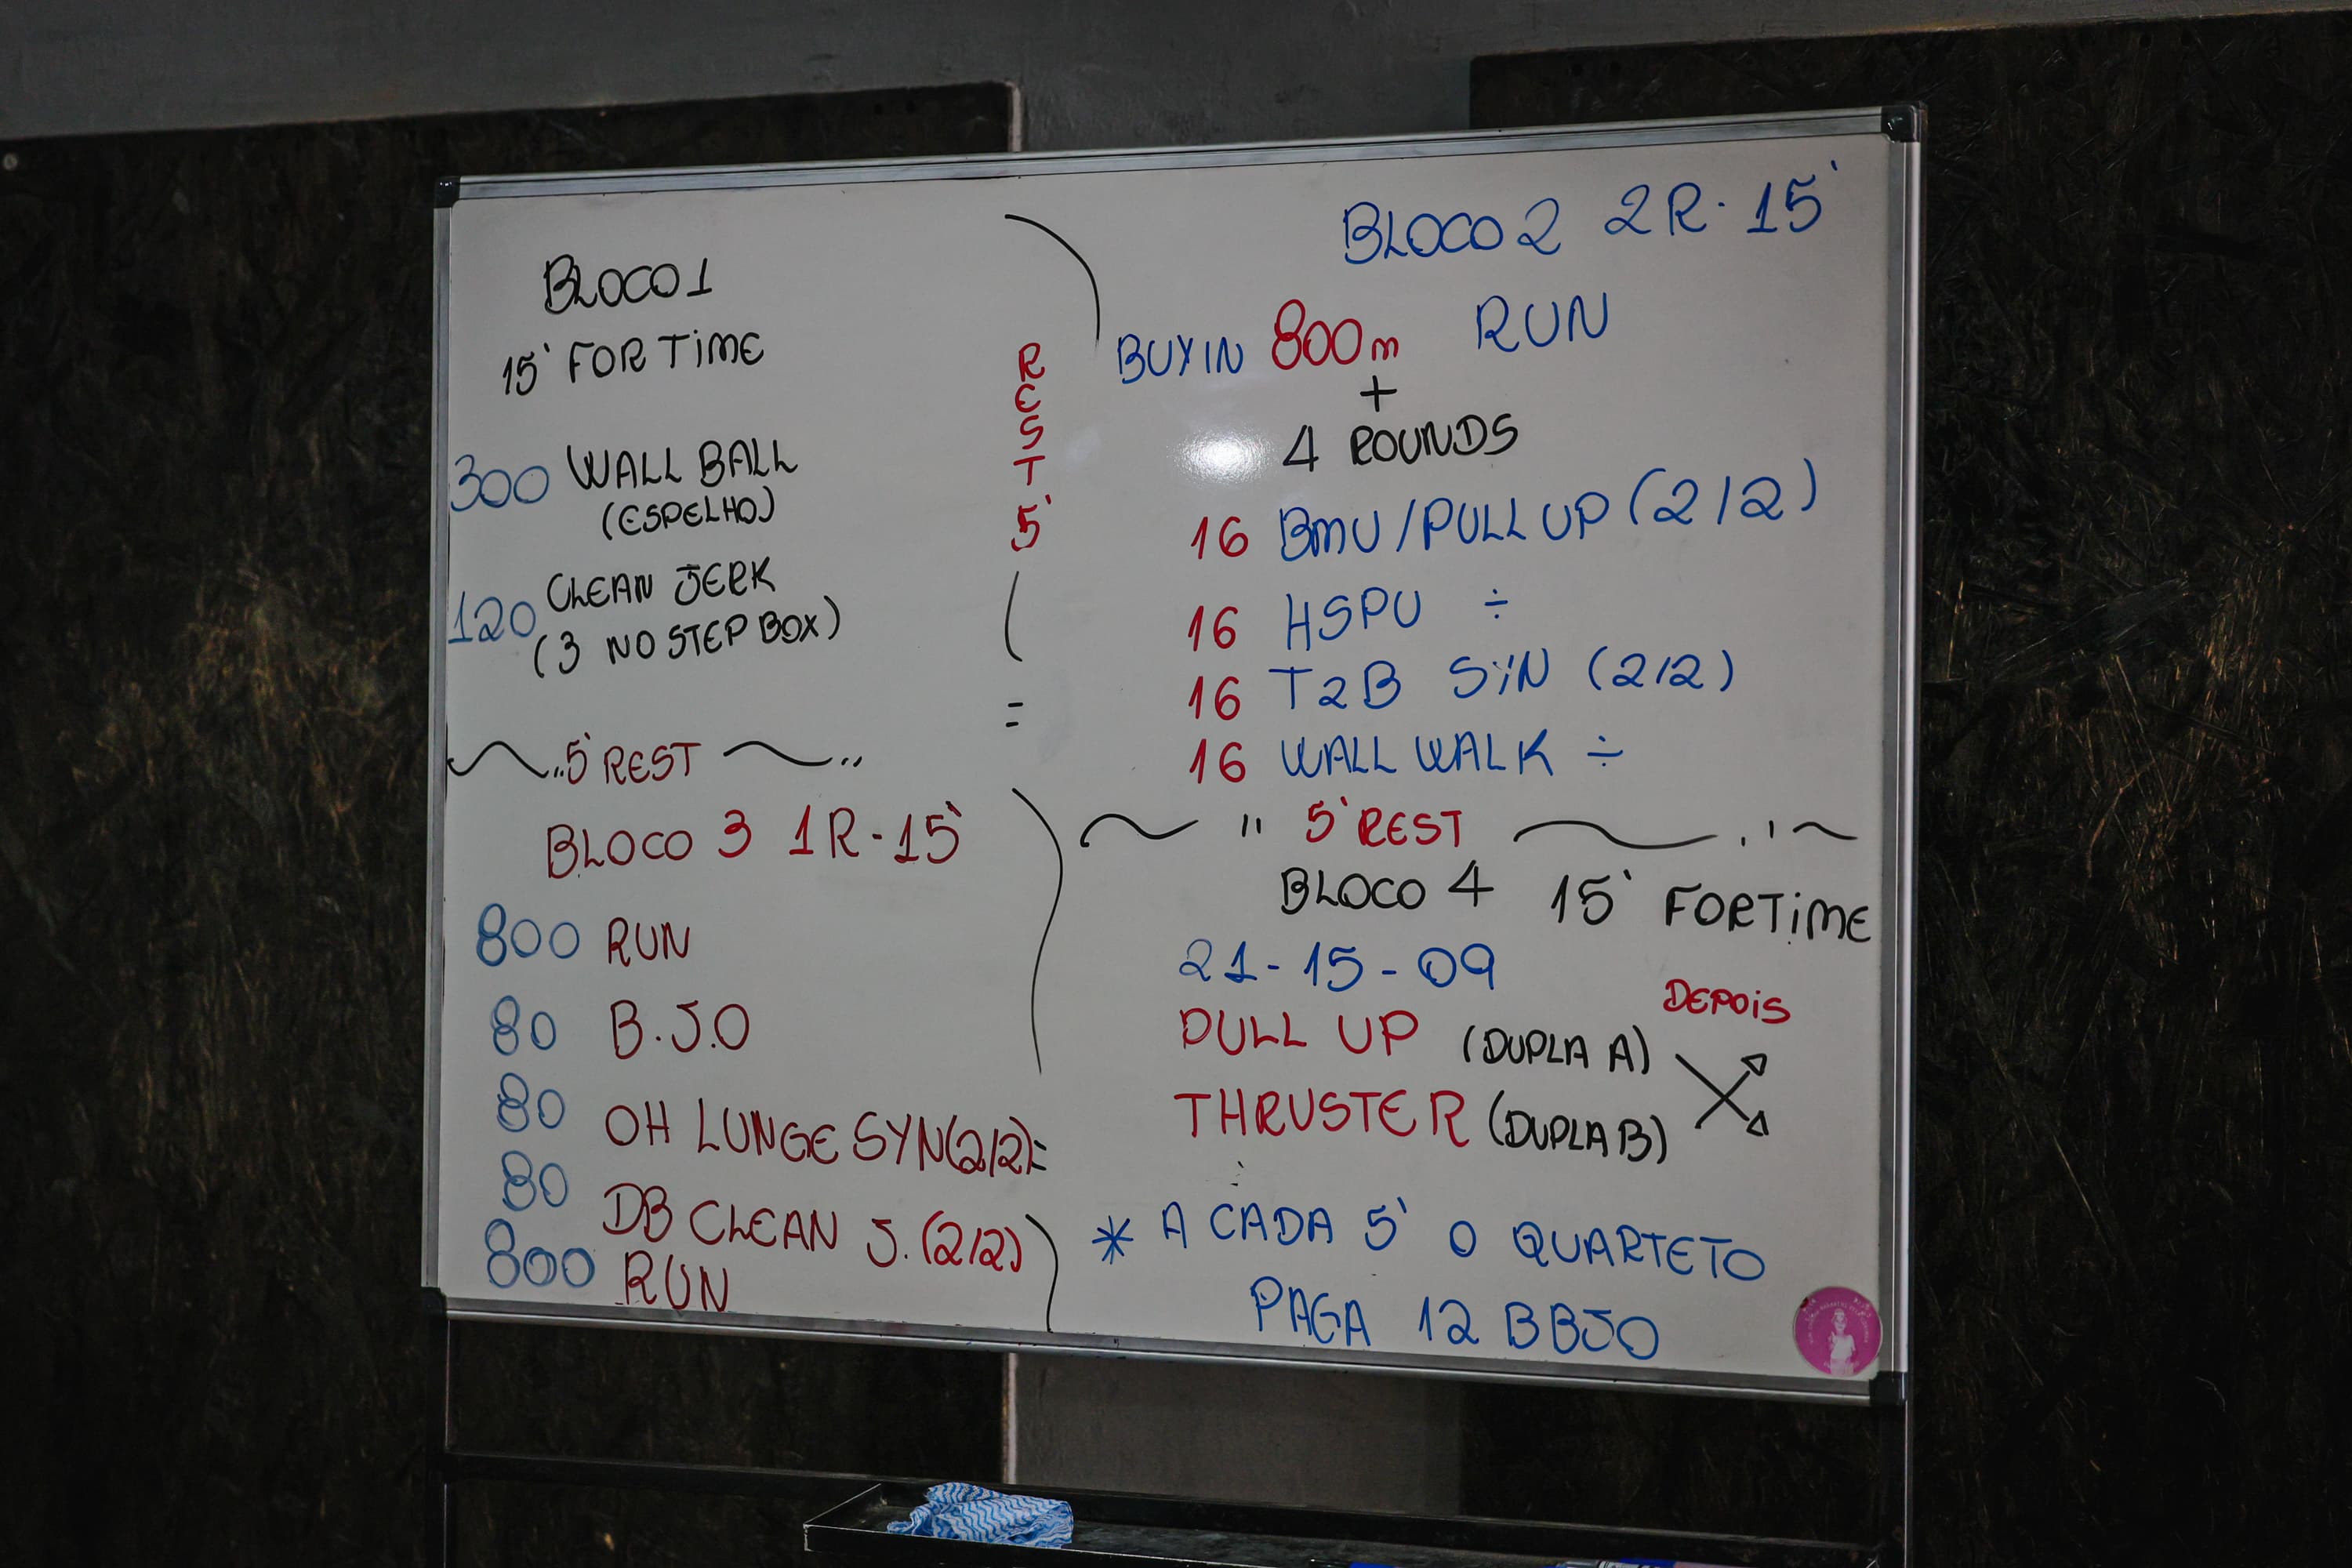 BLOCO 1
15' FOR TIME
300 WALL BALL
(ESPELHO)
120 CLEAN JERK
(3 NO STEP BOX)
5' REST
REST 5'
BLOCO 2 2R. 15'
BUYIN 800m RUN
+
4 ROUNDS
16 BMU/PULL UP (2/2)
16 HSPU ÷
16 T2B SiN (2/2)
16 WALL WALK ÷
5' REST
BLOCO 3 1R-15'
800 RUN
80 B.J.O
80 OH LUNGE SYN(2/2)=
80 DB CLEAN J. (2/2)
800 RUN
BLOCO 4 15' FORTIME
21-15-09
DEPOIS
PULL UP (DUPLA A)
THRUSTER (DUPLA B)
* A CADA 5' O QUARTETO
PAGA 12 BBJO